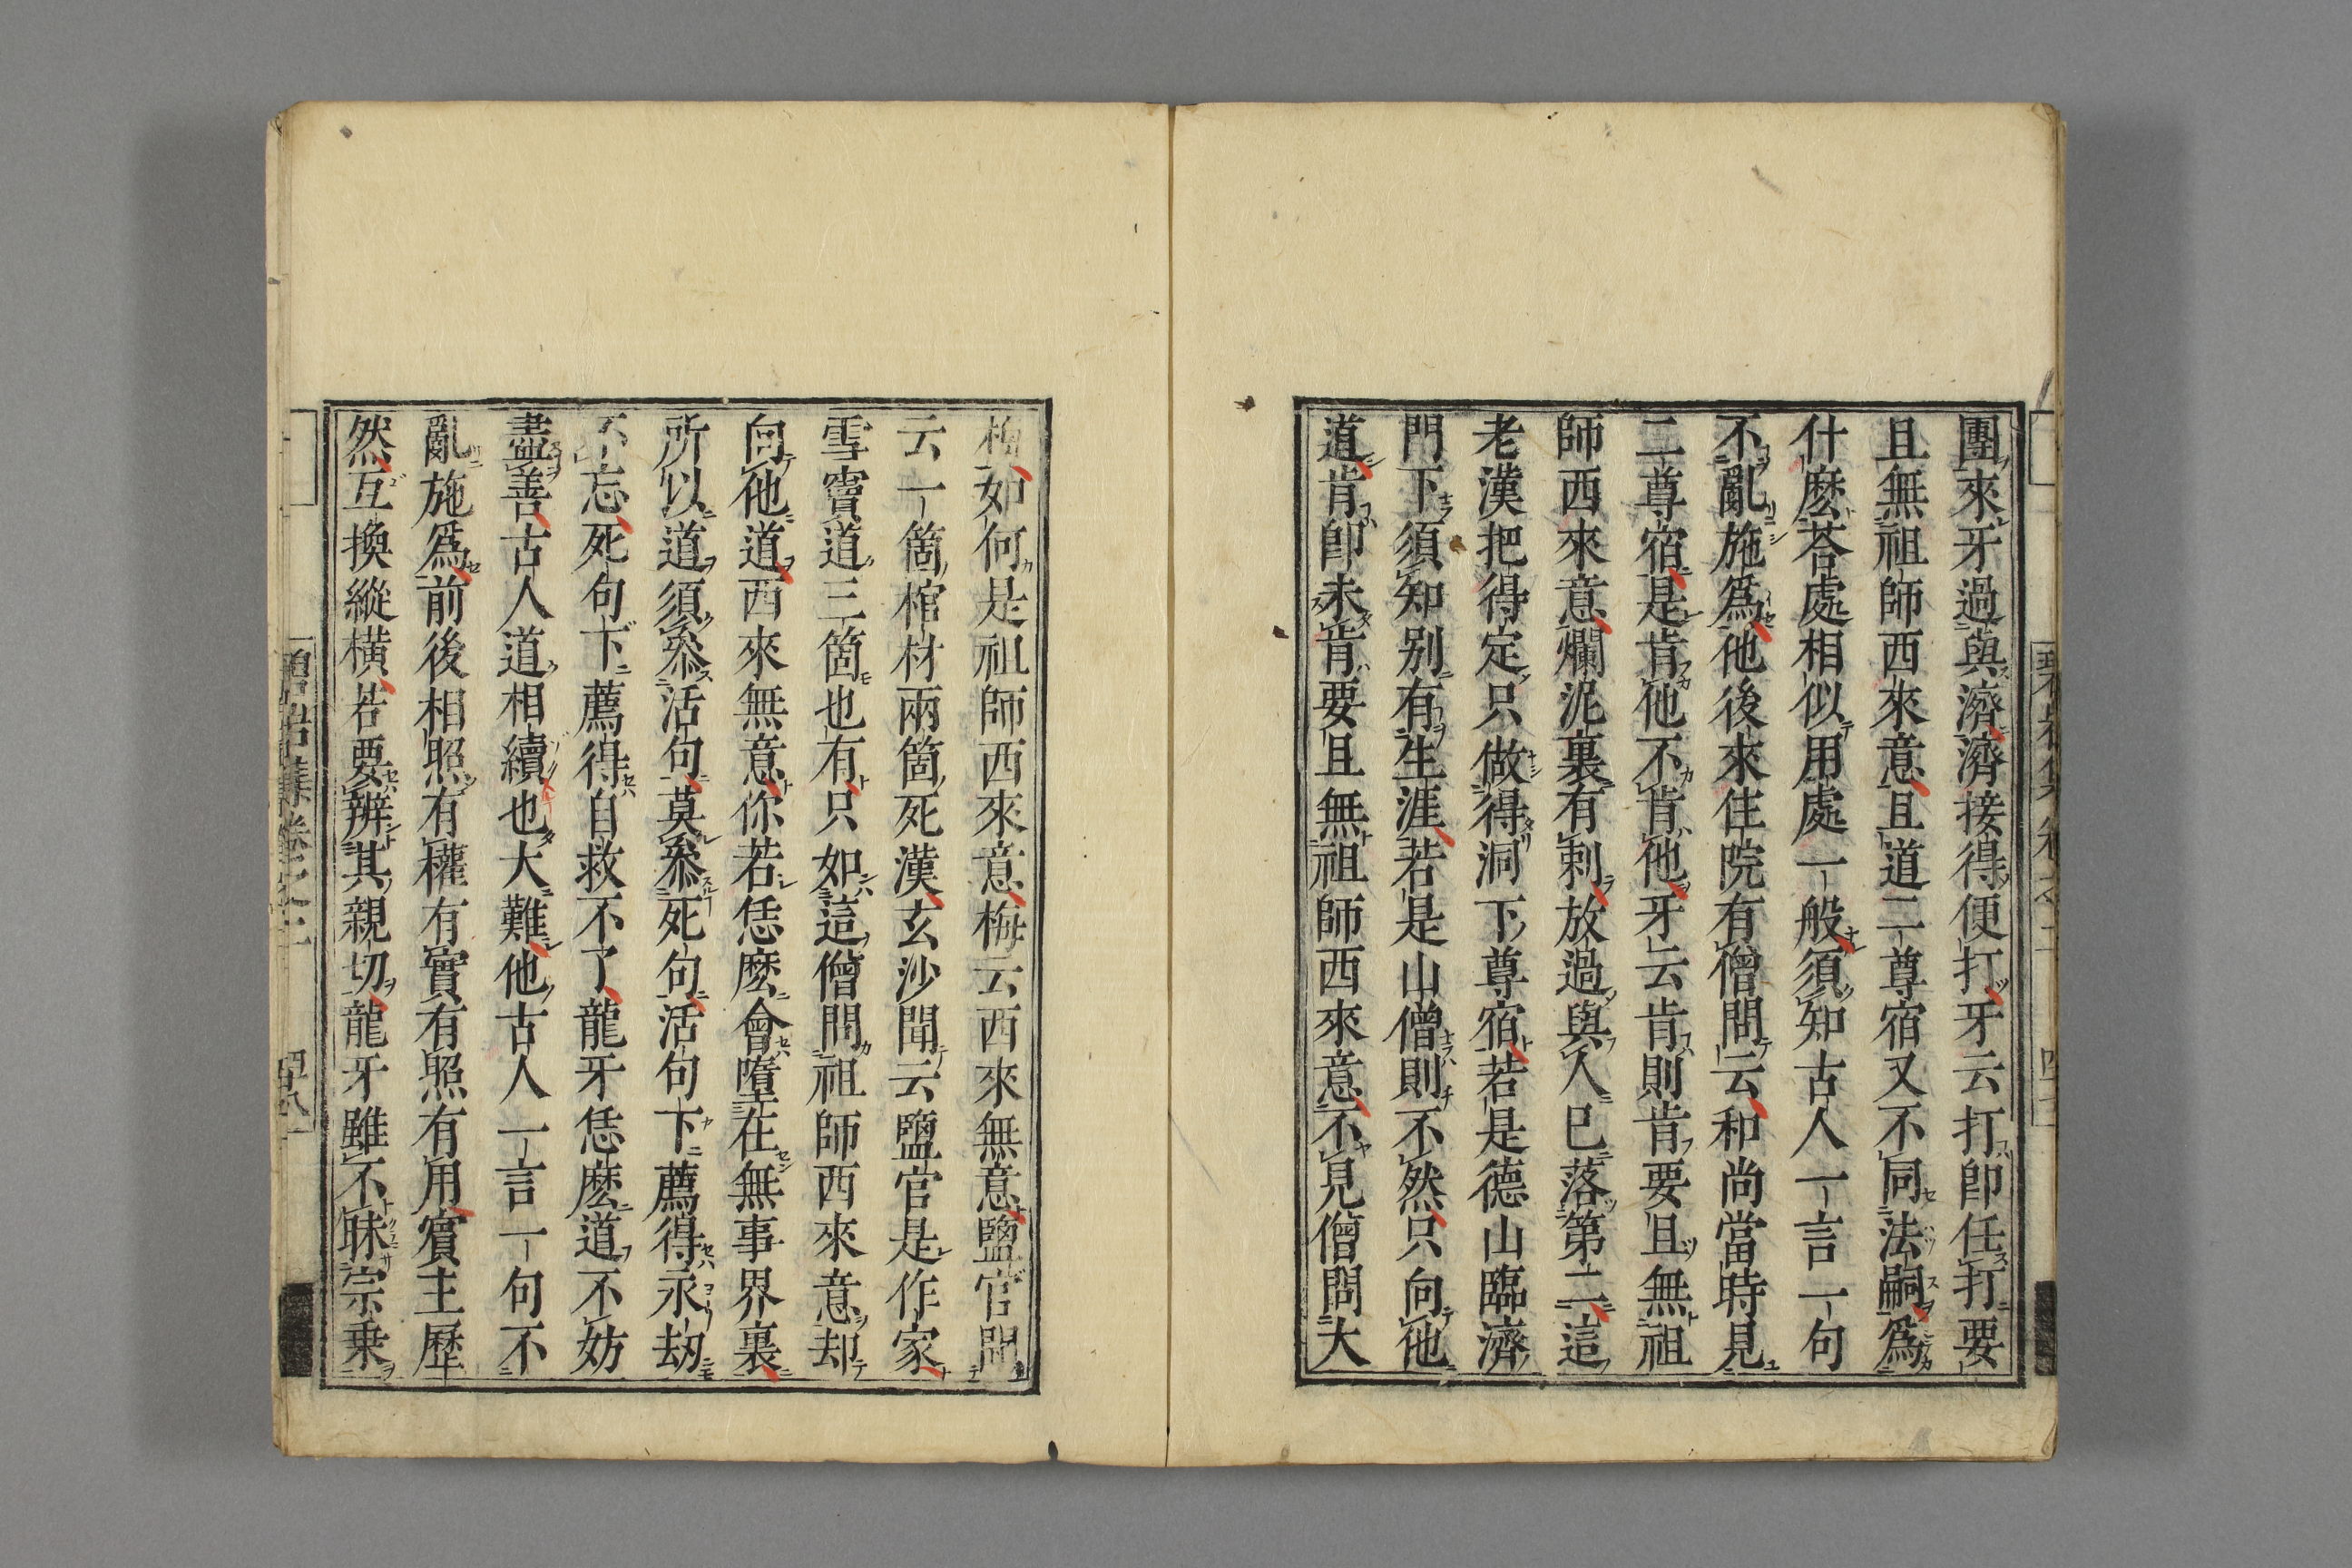 團來牙過與濟濟接得便打牙云打即任打要
且無祖師西來意且道二尊宿又不同法嗣爲
什麽荅處相似用處一般須知古人一言一句
不亂施爲他後來住院有僧問云和尚當時見
二尊宿是肯他不肯他牙云肯則肯要且無祖
師西來意爛泥裏有刺放過與人已落第二這
老漢把得定只做得洞下尊宿若是德山臨濟
門下須知别有生涯若是山僧則不然只向他
道肯即未肯要且無祖師西來意不見僧問大
梅如何是祖師西來意梅云西來無意鹽官聞
云一箇棺材兩箇死漢玄沙聞云鹽官是作家
雪竇道三箇也有只如這僧問祖師西來意却
向他道西來無意你若恁麽會墮在無事界裏
所以道須叅活句莫叅死句活句下薦得永劫
不忘死句下薦得自救不了龍牙恁麽道不妨
盡善古人道相續也大難他古人一言一句不
亂施爲前後相照有權有實有照有用賓主歷
然互換縱橫若要辨其親切龍牙雖不昧宗乗
碧岩集卷之二